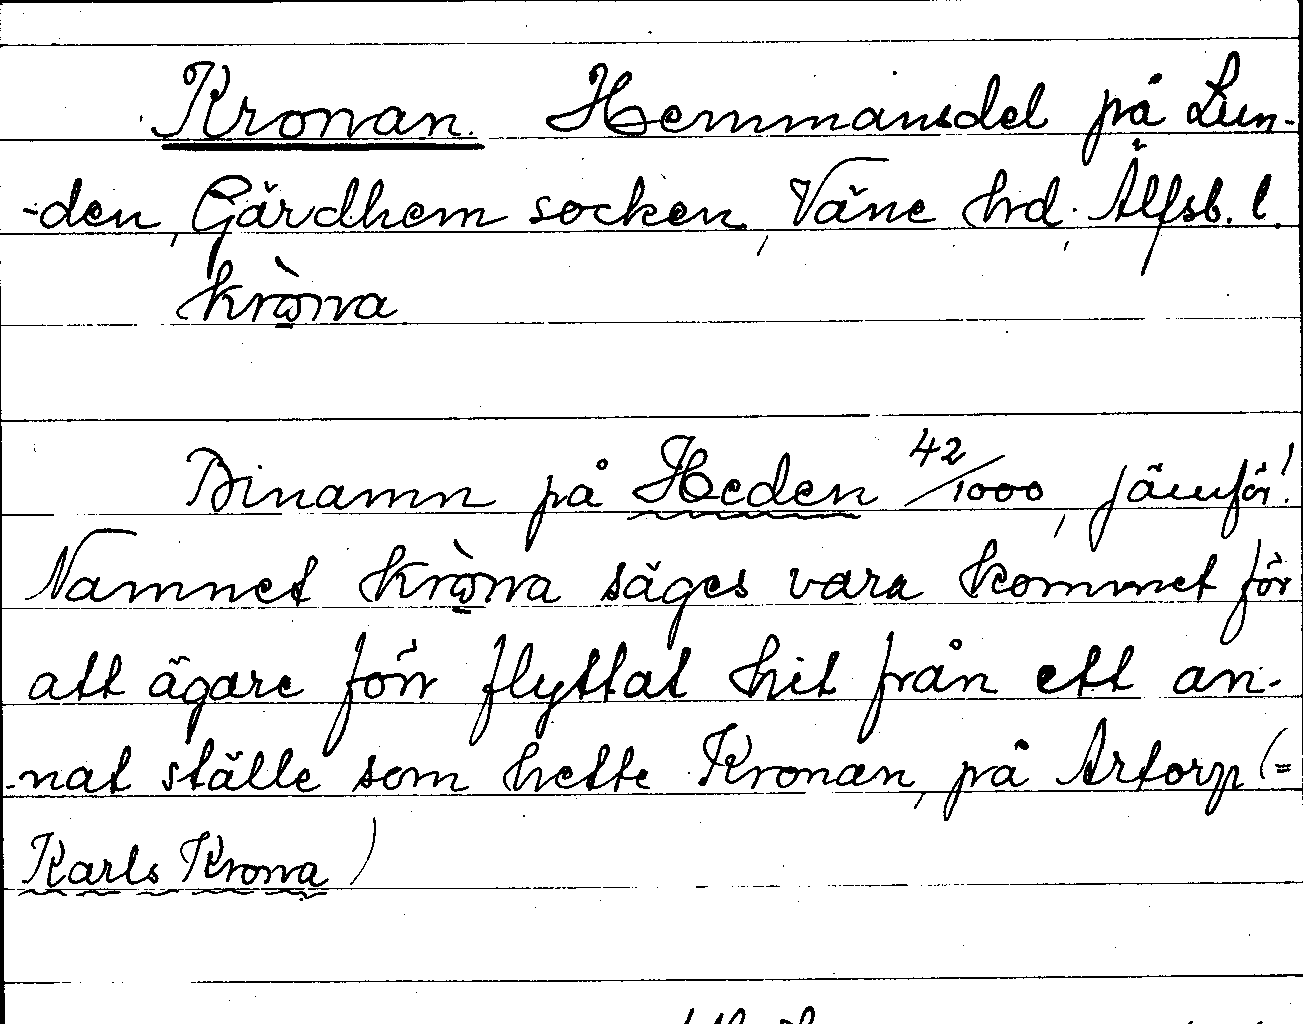 Kronan. Hemmansdel på Lun-
-den, Gärdhem socken, Väne hd. Älfsb. l.
krò̤na
Binamn på Heden 42/1000, jämför!
Namnet krò̤na säges vara kommet för
att ägare förr flyttat hit från ett an-
-nat ställe som hette Kronan, på Artorp (=
Karls Krona)